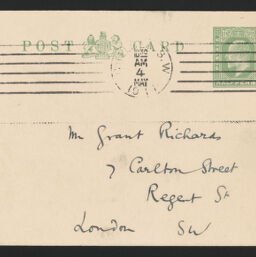 POST CARD
AM
4
MAY
Mr Grant Richards
7 Carlton Street
Regent St
London SW